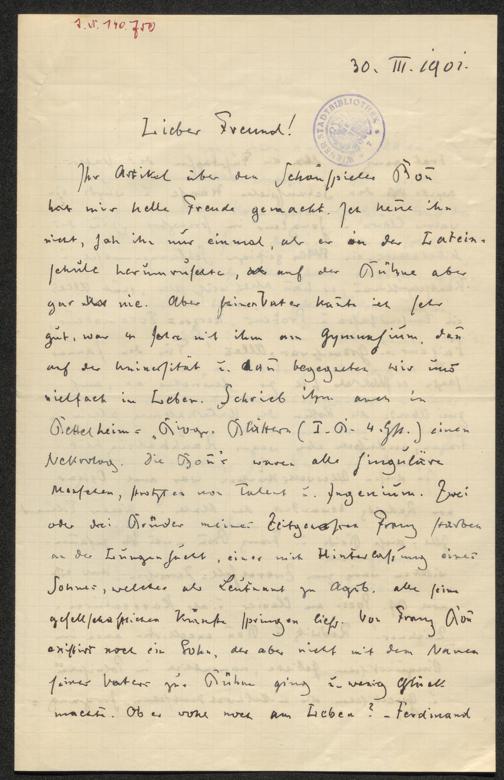 30. III. 1901.
WIENER STADTBIBLIOTHEK
Lieber Freund!
Ihr Artikel über den Schauspieler Bon̄
hat mir helle Freude gemacht. Ich ken̄e ihn
nicht, sah ihn nur einmal, als er in der Latein-
schule herumrutschte, auf der Bühne aber
gar nie. Aber seinen Vater kan̄te ich sehr
gut, war 4 Jahre mit ihm am Gymnasium, dan̄
auf der Universität u. dan̄ begegneten wir uns
vielfach im Leben. Schrieb ihm auch in
Bettelheims „Biogr. Blättern (I. B. 4. ) einen
Nekrolog. Die Bon̄'s waren alle singuläre
Menschen, protzten von Talent u. Ingenium. Zwei
oder drei Brüder meines Zeitgenossen Franz starben
an der Lungensucht, einer mit Hinterlassung eines
Sohnes, welcher als Leutnant zu Augsb. alle seine
gesellschaftlichen Künste springen ließ. Von Franz Bon̄
existirt noch ein Sohn, der aber nicht mit dem Namen
seines Vaters zur Bühne ging u. wenig Glück
machte. Ob er wohl noch am Leben? – Ferdinand